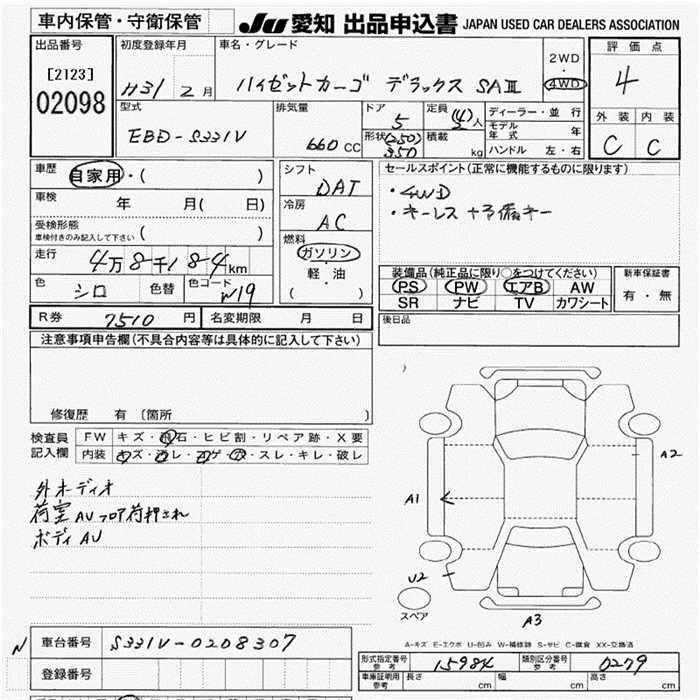 車内保管・守衛保管
JU 愛知 出品申込書 JAPAN USED CAR DEALERS ASSOCIATION
出品番号
[2123]
02098
初度登録年月
H31 2月
車名・グレード
ハイゼットカーゴ デラックス SAⅢ
2WD
・
4WD
評価点
4
外装 内装
C C
型式
EBD-S331V
排気量
660 CC
ドア
5
形状
定員
(4)
2人
積載
(250)
350 kg
ディーラー・並行
モデル年式 年
ハンドル 左・右
車歴
自家用・( )
車検 年 月( 日)
受検形態
車検付きのみ記入して下さい ( )
走行
4万8千184km
色 シロ 色替 色コード W19
シフト
DAT
冷房
AC
燃料
ガソリン
軽・油
( )
セールスポイント(正常に機能するものに限ります)
・4WD
・キーレス+予備キー
装備品(純正品に限り○をつけてください)
PS PW エアB AW
SR ナビ TV カワシート
新車保証書
有・無
R券 7510円 名変期限 月 日
後日品
注意事項申告欄(不具合内容等は具体的に記入して下さい)
修復歴 有 〔箇所 〕
検査員記入欄
FW キズ・飛石・ヒビ割・リペア跡・X要
内装 キズ・ヨレ・コゲ・穴・スレ・キレ・破レ
外オーディオ
荷室AUフロア荷押され
ボディAU
A1
A2
U2
A3
スペア
A-キズ E-エクボ U-凹み W-補修跡 S-サビ C-腐食 XX-交換済
N
車台番号 S331V-0208307
登録番号
形式指定番号 参考 15984
類別区分番号 参考 0279
車庫証明用 参考 長さ cm 幅 cm 高さ cm